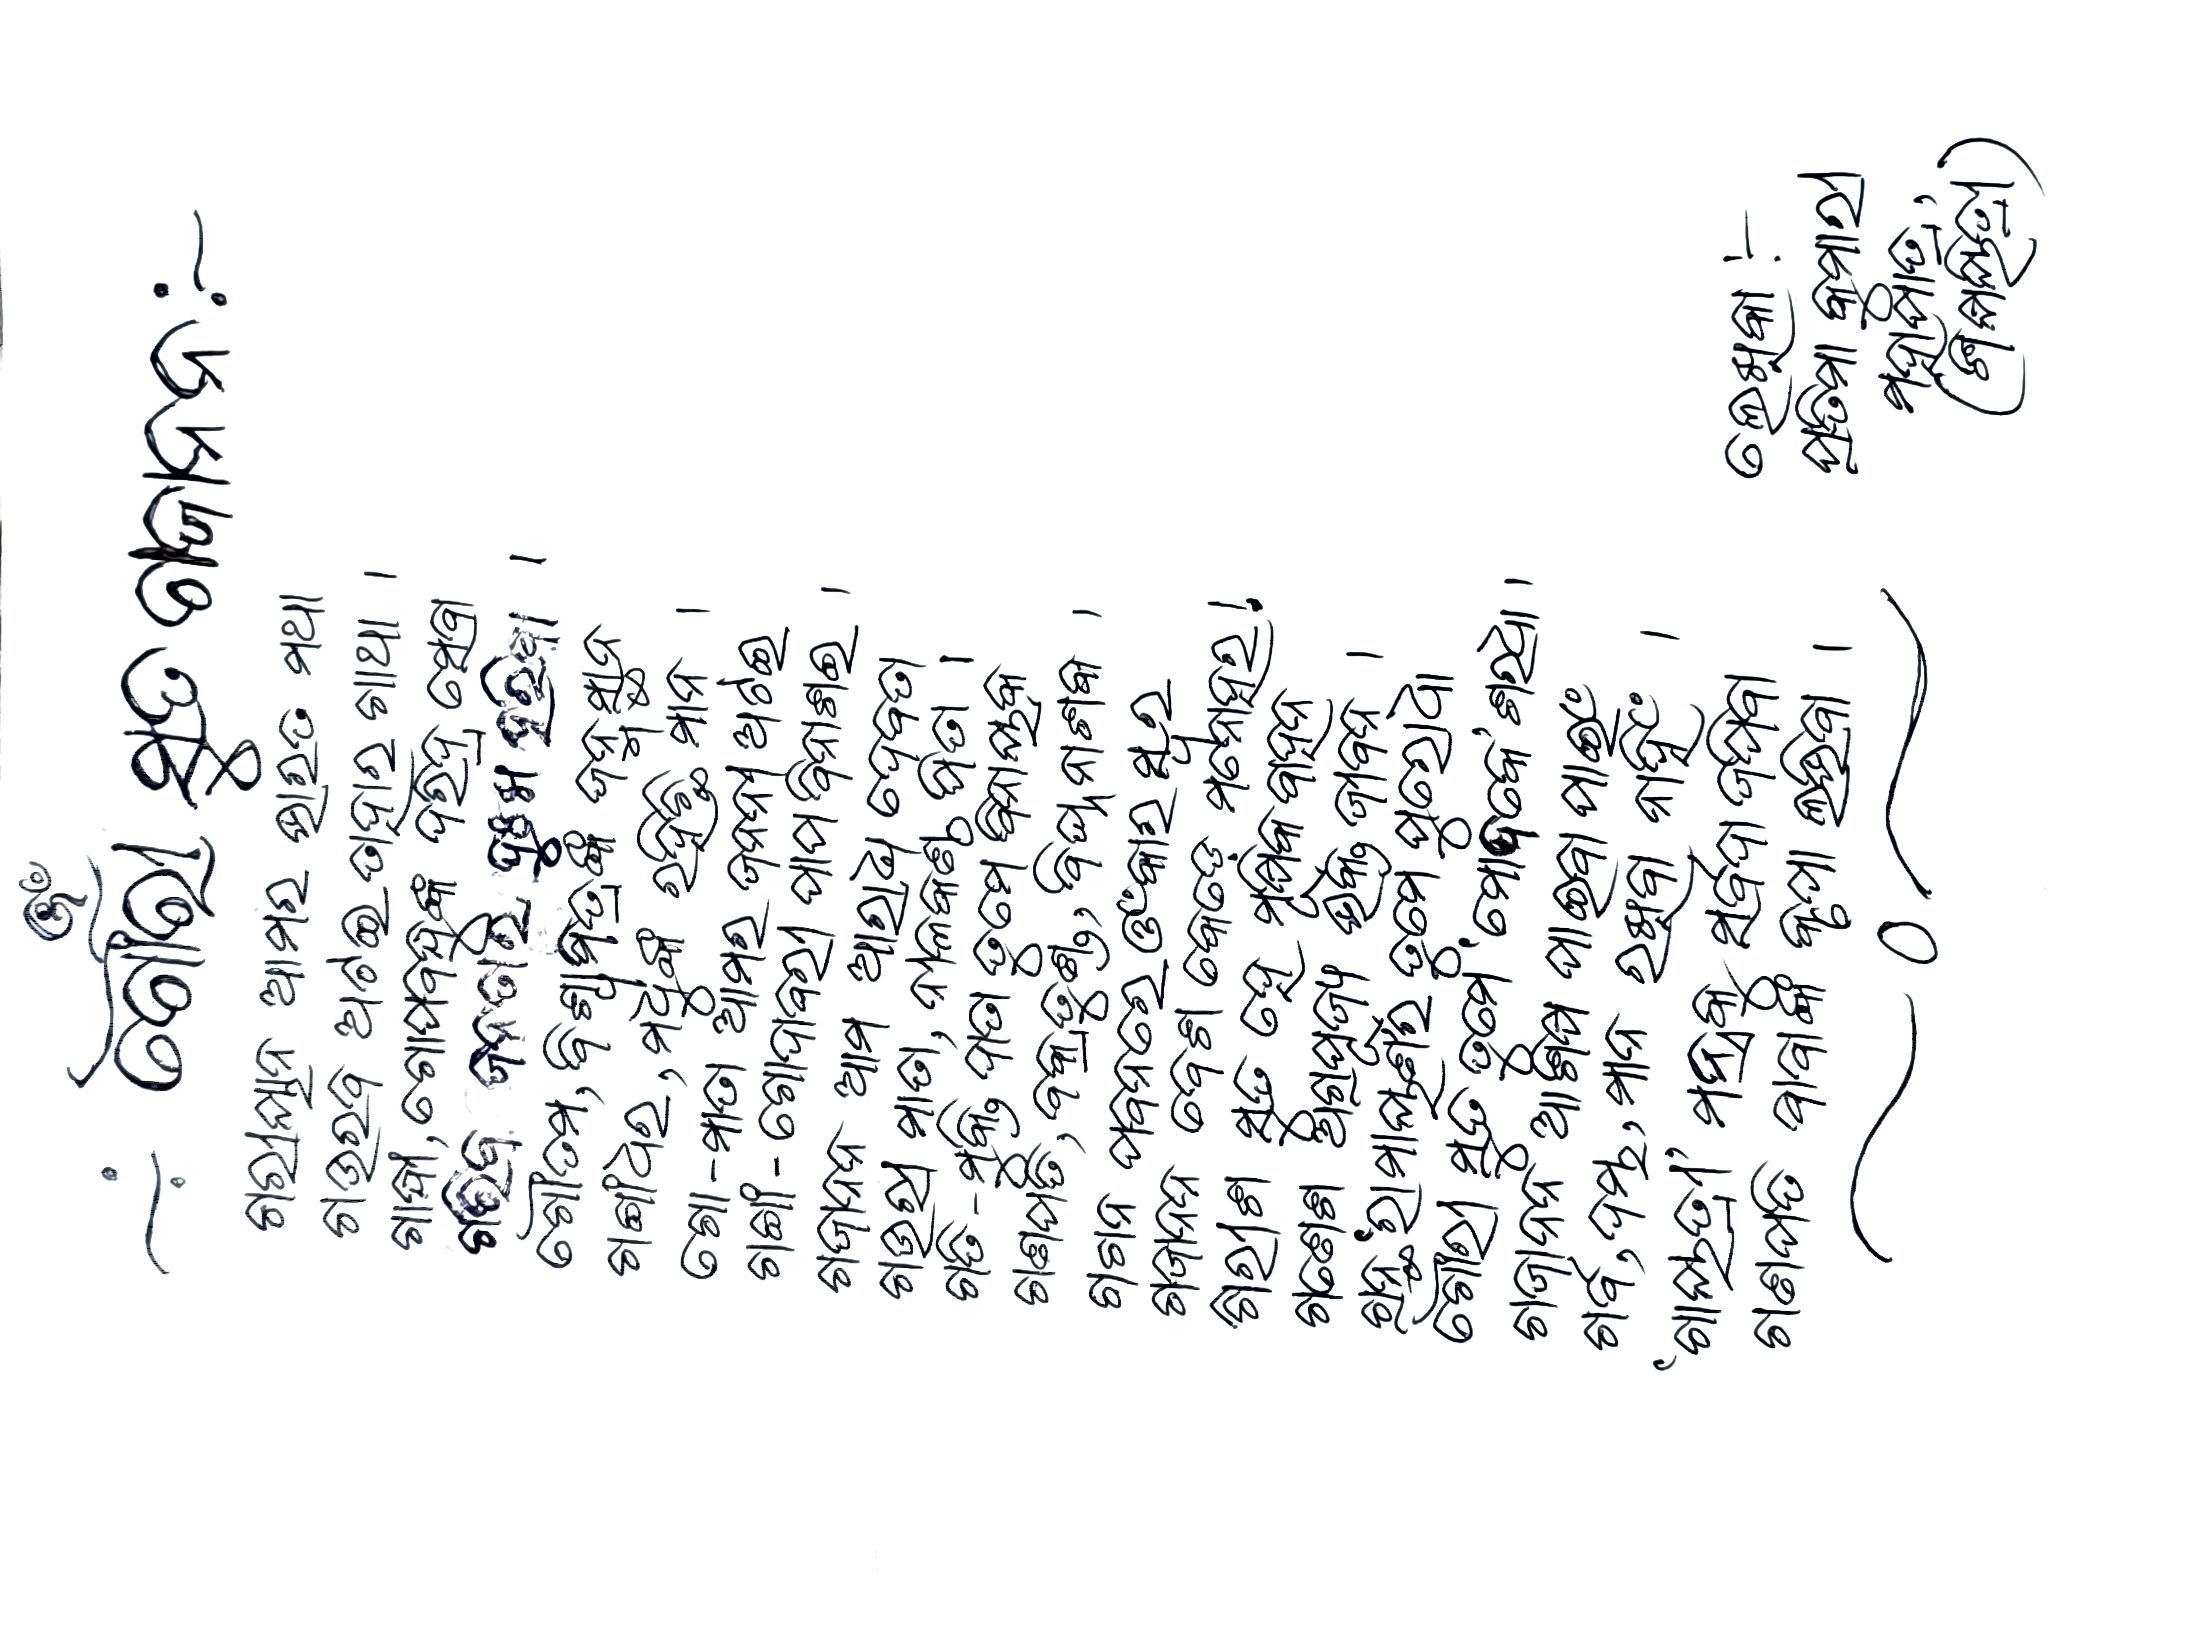 ଓଁ
-: ଗୌରୀ ସୁତ ଗଜାନନ :-
ଗରୀୟାନ ଆମର ଭାରତ ମଥା
ଗଉରବ ଅଟଇ ତାହାର ଗାଥା ।
ଗାନ୍ଧୀ, ଗୋପବନ୍ଧୁଙ୍କ ଦରିଦ୍ର ସେବା
ଗରିବ ଜନତାର ଦୁଃଖ ହରିବା ।
ଗୌତମ, ବିଶ୍ୱାମିତ୍ରଙ୍କ ଜନ୍ମସ୍ଥାନ
ଗଙ୍ଗାଧର, ମଧୁଙ୍କ ରହିଛି ମାନ ।
ଗୋ-ମାତା ଆମର ଜନନୀ ଅଟଇ
ଗଙ୍ଗା-ଗୋଦାବରୀ ପାପ ବିନାଶଇ ।
ଗଜାନନ ଆମ ଆରାଧ୍ୟ ଦେବତା
ଗଉରୀ ମାତା, ନୀଳକଣ୍ଠ ପିତା ।
ଗତି-ମୁକ୍ତି ଦାତା ତୁମେ ବିନାୟକ
ଗଣପତି, ବକ୍ରତୁଣ୍ଡ, ବିଘ୍ନନାଶକ ।
ଗଗନ ପବନରେ ଓଁକାର ସ୍ୱର
ଗଜାନନ ବେଶ କେଡ଼େ ମନୋହର !
ଗିରୀଶ ସୁତ ହେ ମୂଷିକ ବାହନ
ଗଣେଶ ଅଗ୍ରପୂଜ୍ୟ ଭକ୍ତ ଜୀବନ ।
ଗ୍ରନ୍ଥ 'ରାମାୟଣ'ର ତୁମେ ପୁରୋଧା
ଗୌରୀ ସୁତ ତୁମେ 'ମୋଦକେ' ଶରଧା ।
ଗଜାନନ ଆଶିଷ ପାଇବା ପାଇଁ
ଗର୍ବ, ଦମ୍ଭ, ମାନ ରଖିବା ନାହିଁ ।
'ଗାୟତ୍ରୀ' ମନ୍ତ୍ରକୁ ସର୍ବଦା ଜପିବା
ଗଣପତି ବାବାଙ୍କ କୃପା ଲଭିବା ।
୦
ଲେଖିକା :-
ପ୍ରତିମା କୁମାରୀ
ମହାପାତ୍ର,
(ଶିକ୍ଷୟିତ୍ରୀ)